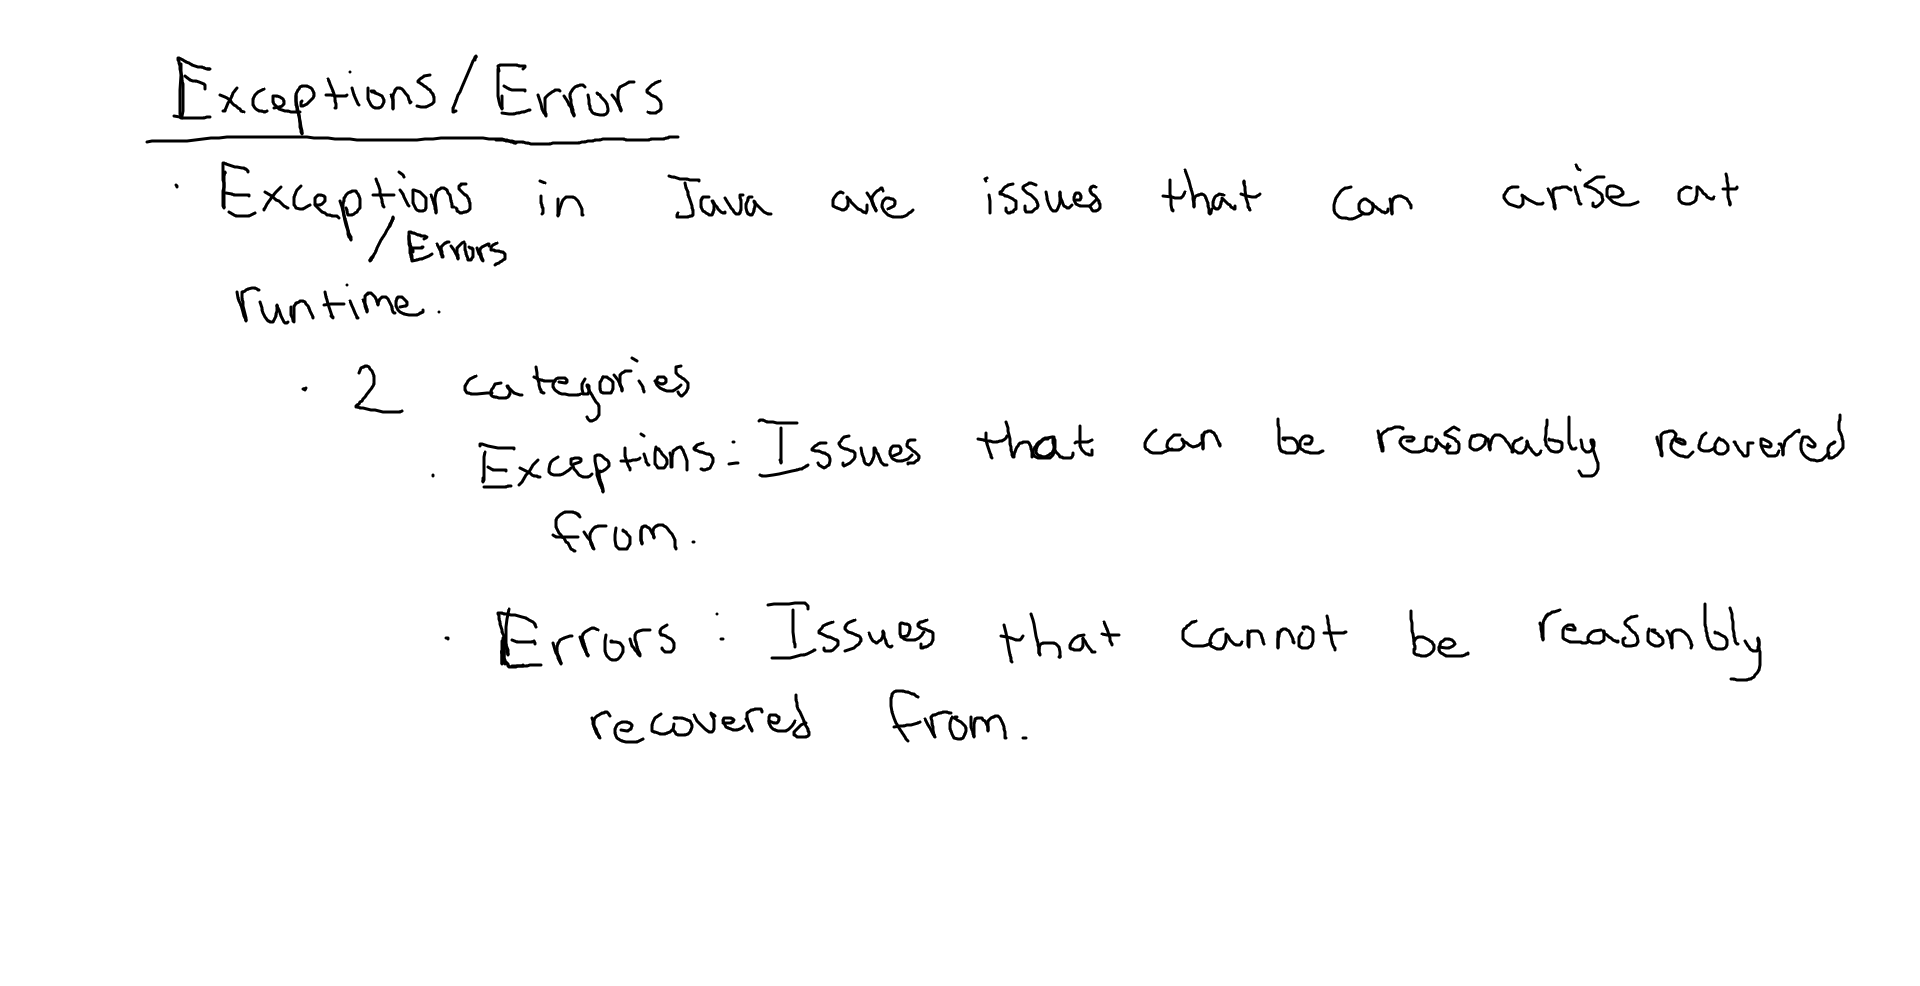 Exceptions/Errors
· Exceptions in Java are issues that can arise at
/Errors
runtime.
· 2 categories
· Exceptions: Issues that can be reasonably recovered
from.
· Errors: Issues that cannot be reasonbly
recovered from.